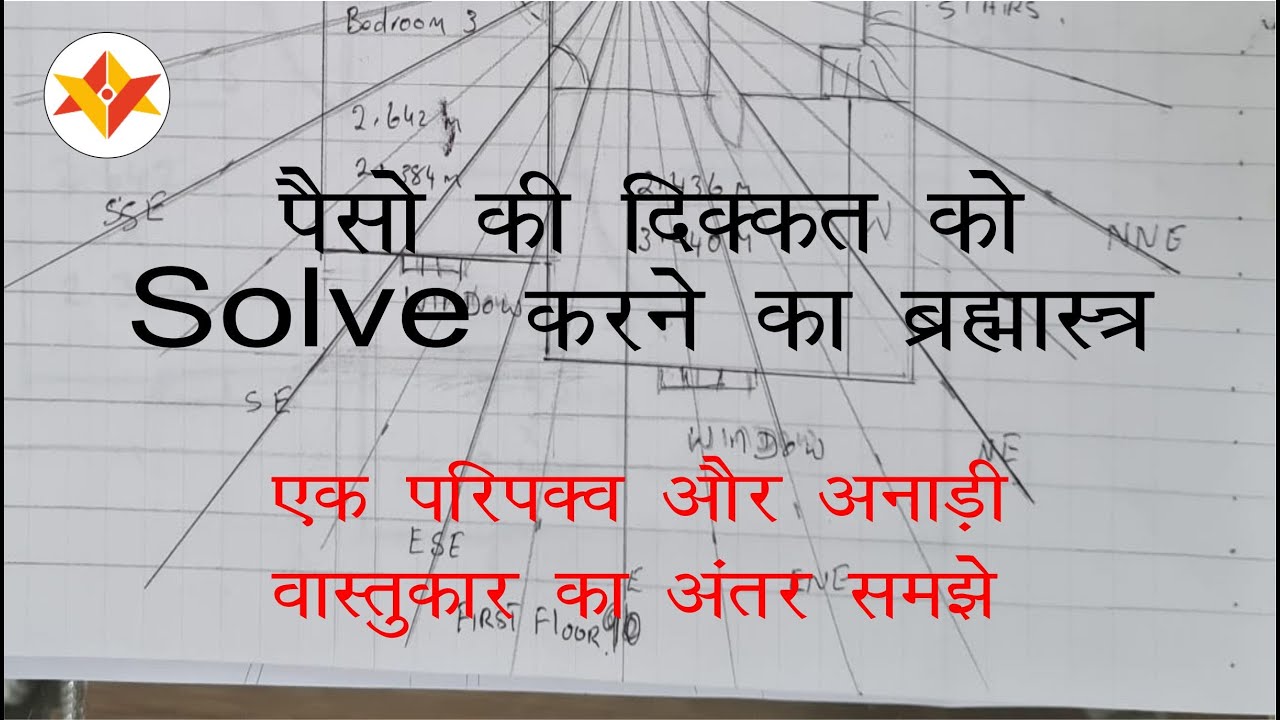 Bedroom 3
STAIRS.
2.642 m
2.384 m
2.436 m
SSE
पैसो की दिक्कत को
NNE
WINDOW
Solve करने का ब्रह्मास्त्र
SE
WINDOW
NE
एक परिपक्व और अनाड़ी
ESE
वास्तुकार का अंतर समझे
E
ENE
FIRST FLOOR